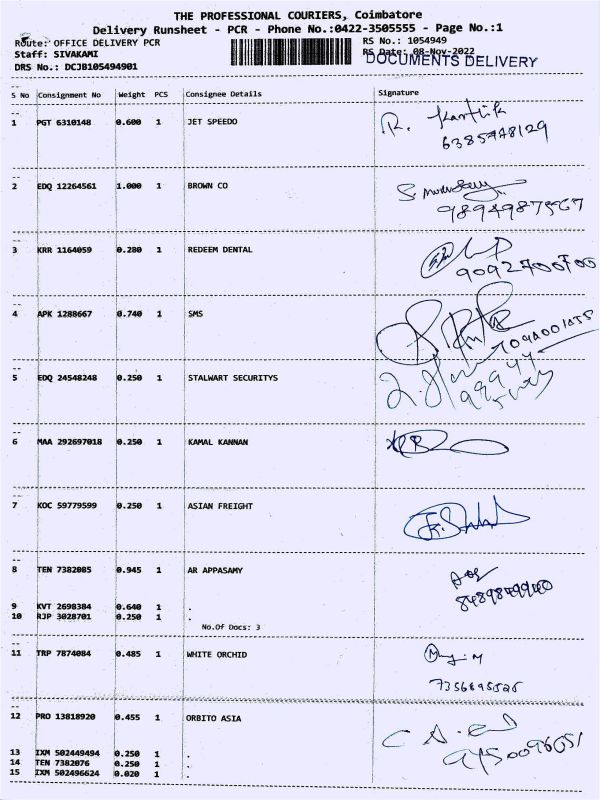 THE PROFESSIONAL COURIERS, Coimbatore
Delivery Runsheet - PCR - Phone No.:0422-3505555 - Page No.:1
Route: OFFICE DELIVERY PCR
RS No.: 1054949
Staff: SIVAKAMI
RS Date: 08-Nov-2022
DOCUMENTS DELIVERY
DRS No.: DCJB105494901
S No Consignment No Weight PCS Consignee Details Signature
1 PGT 6310148 0.600 1 JET SPEEDO R. Karthik
6385748129
2 EDQ 12264561 1.000 1 BROWN CO
9894987567
3 KRR 1164059 0.280 1 REDEEM DENTAL
9092700700
4 APK 1288667 0.740 1 SMS
5 EDQ 24548248 0.250 1 STALWART SECURITYS
6 MAA 292697018 0.250 1 KAMAL KANNAN
7 KOC 59779599 0.250 1 ASIAN FREIGHT
8 TEN 7382085 0.945 1 AR APPASAMY
9 KVT 2698384 0.640 1 .
10 RJP 3028701 0.250 1 .
No.Of Docs: 3
11 TRP 7874084 0.485 1 WHITE ORCHID
12 PRO 13818920 0.455 1 ORBITO ASIA
13 IXM 502449494 0.250 1 .
14 TEN 7382076 0.250 1 .
15 IXM 502496624 0.020 1 .